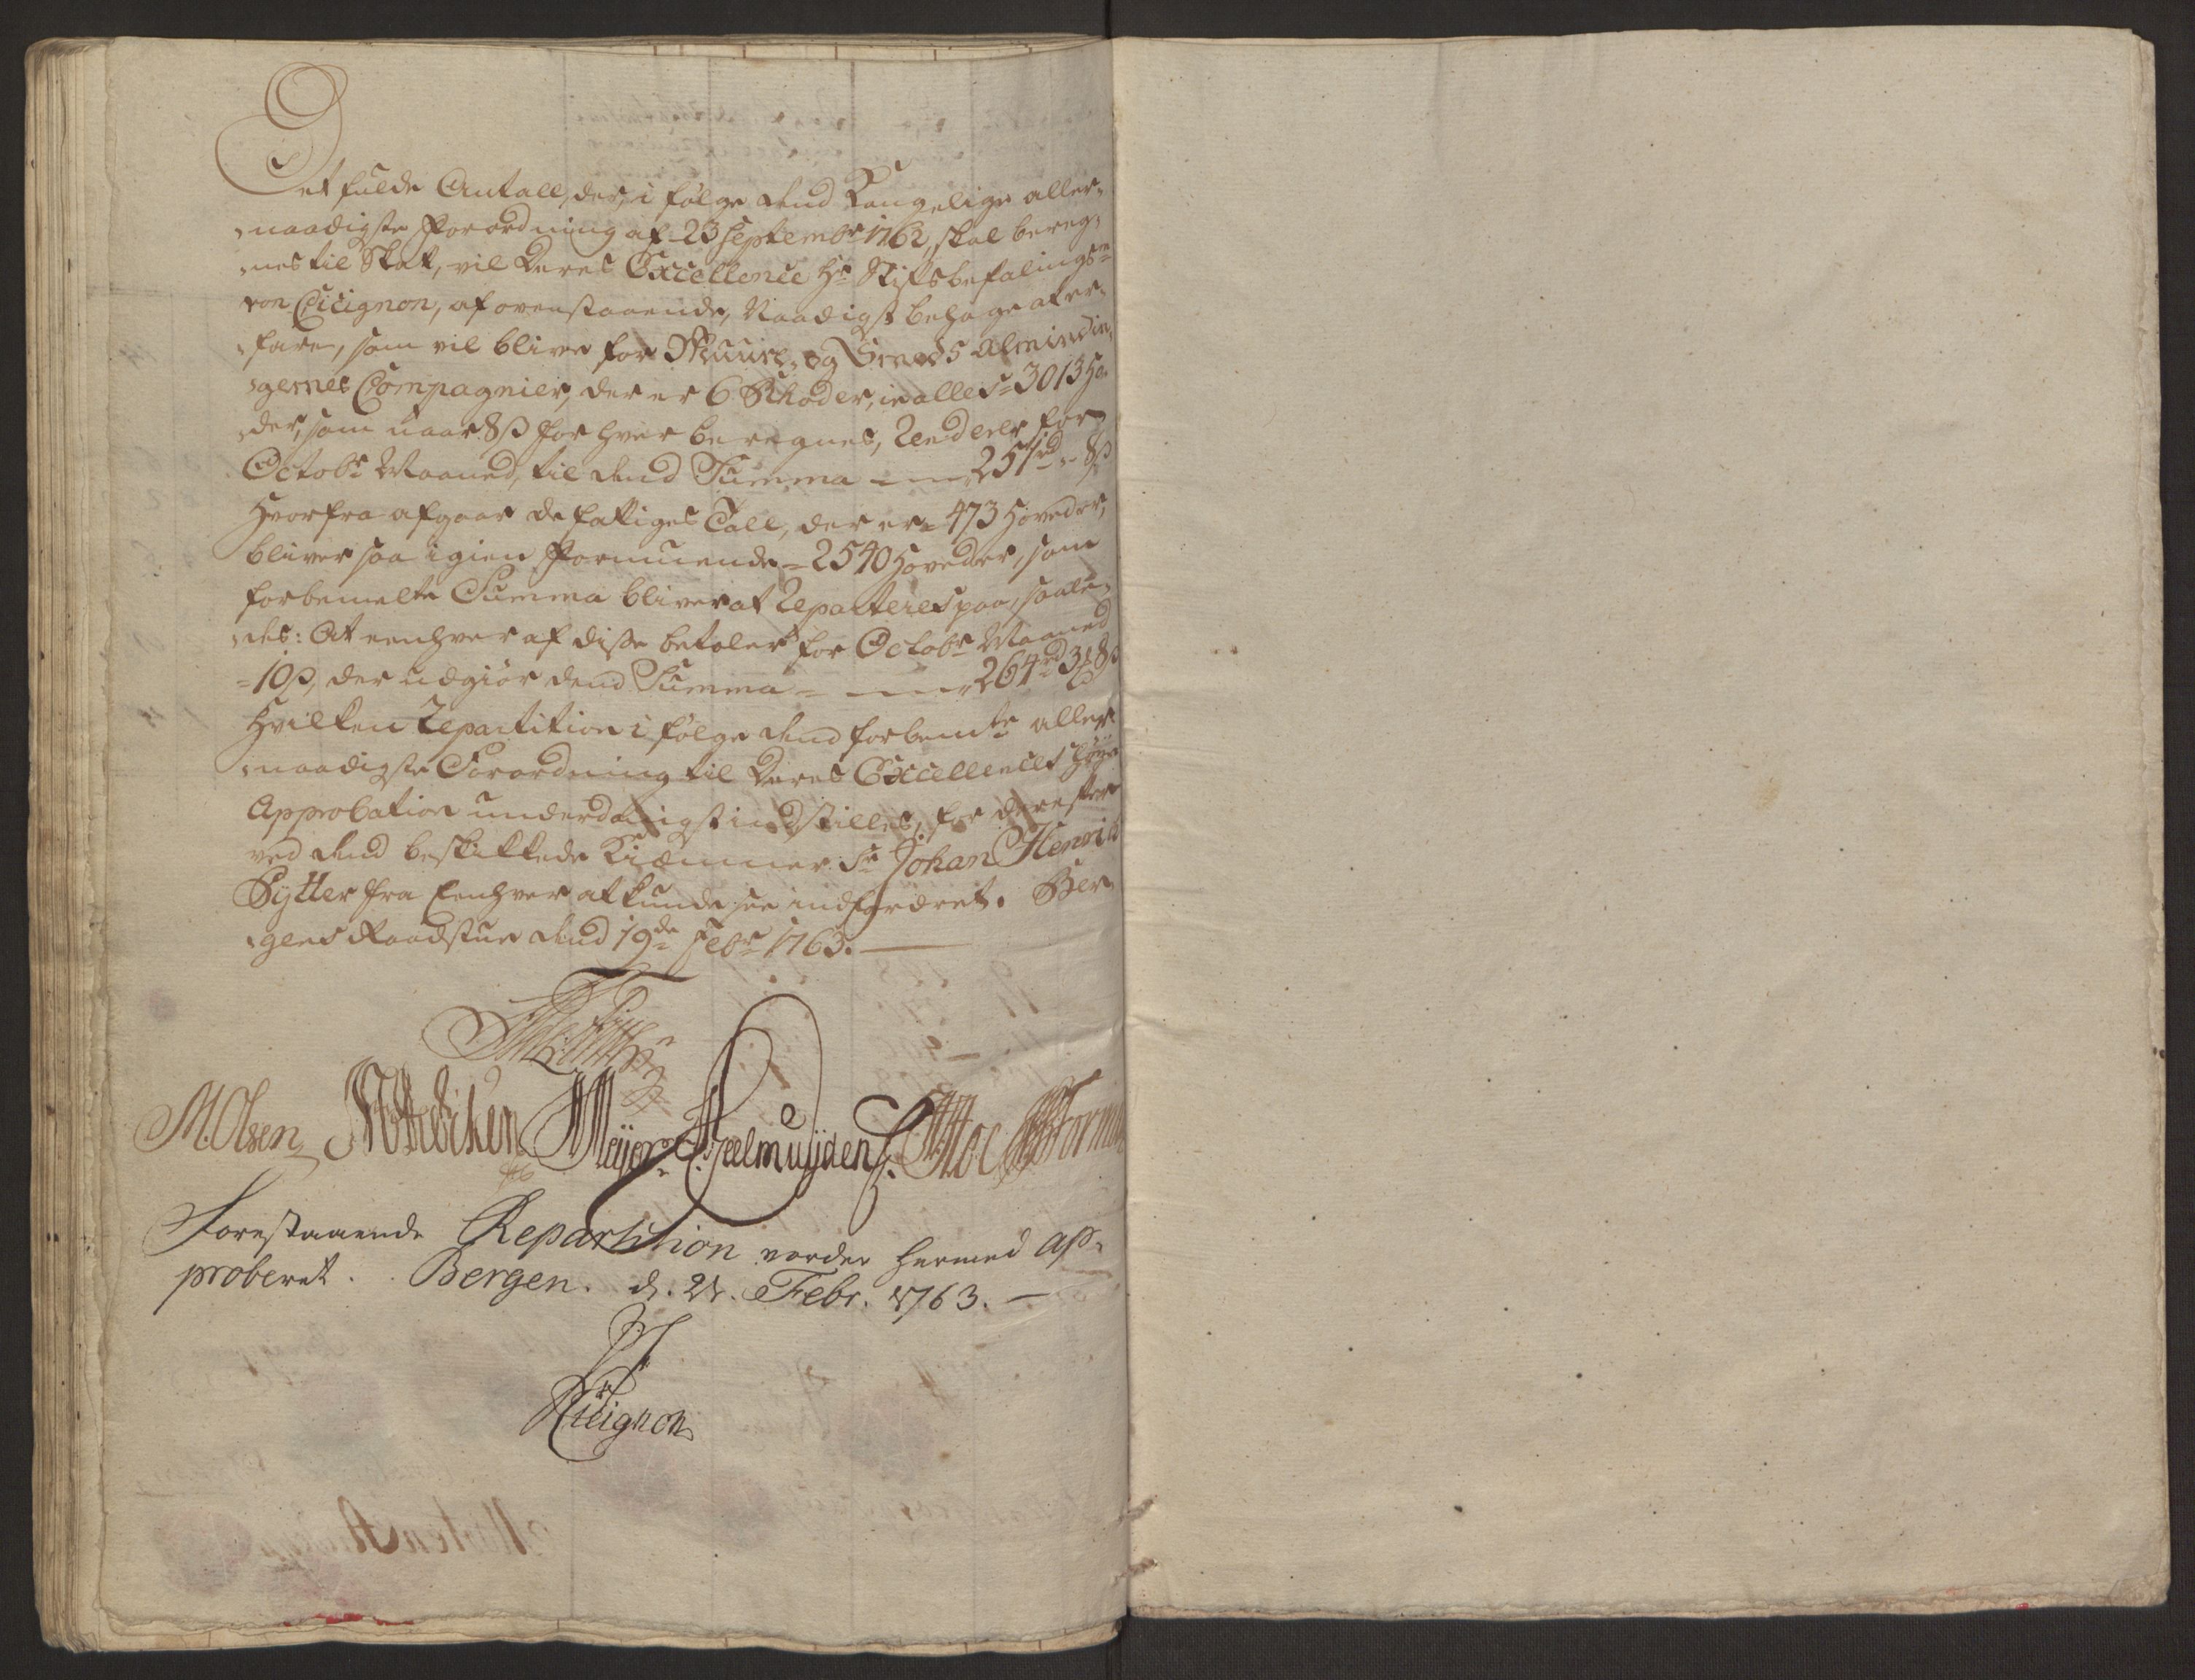 Det fulde Antall, der, i følge dend Kongelige aller-
naadigste Forordning af 23 Septembr 1762, skal bereg-
nes til Skat, vil Deres Excellence Hr Stiftsbefalings-
von Cicignon, af ovenstaaende, Naadigst behage at er-
fare, som vil blive for Muure- og Smeds Almindin-
gernes Compagnier, der er 6 Rhoder, in alles = 3013 Ho-
der, som naar 8 ß for hver beregnes, Zenderer for
Octobr Maaned, til dend Summa 251 rd - 8 ß
Hvorfra afgaar de fattiges Tall, der er = 473 Hoveder,
bliver saa igien Formuende = 2540 Hoveder, som
forbemelte Summa bliver at Reparteres paa, saale-
des: At eenhver af disse betaler for Octobr Maaned
= 10 ß, der udgiør dend Summa = 264 rd 3 8 ß
Hvilken Repartition i følge dend forbemte aller-
naadigste Forordning til Deres Excellences høye
Approbation underdanigst indstilles, for derefter
ved dend beskikkede Kiæmner Sr Johan Henrich
Sytter fra Eenhver at kunde see indfordret. Ber-
gens Raadstue dend 19de Febr 1763.
M. Olsen Meyer Geelmuyden Forman
Forestaaende Repartition vorder hermed ap-
proberet. Bergen. d. 21. Febr. 1763.
Cicignon